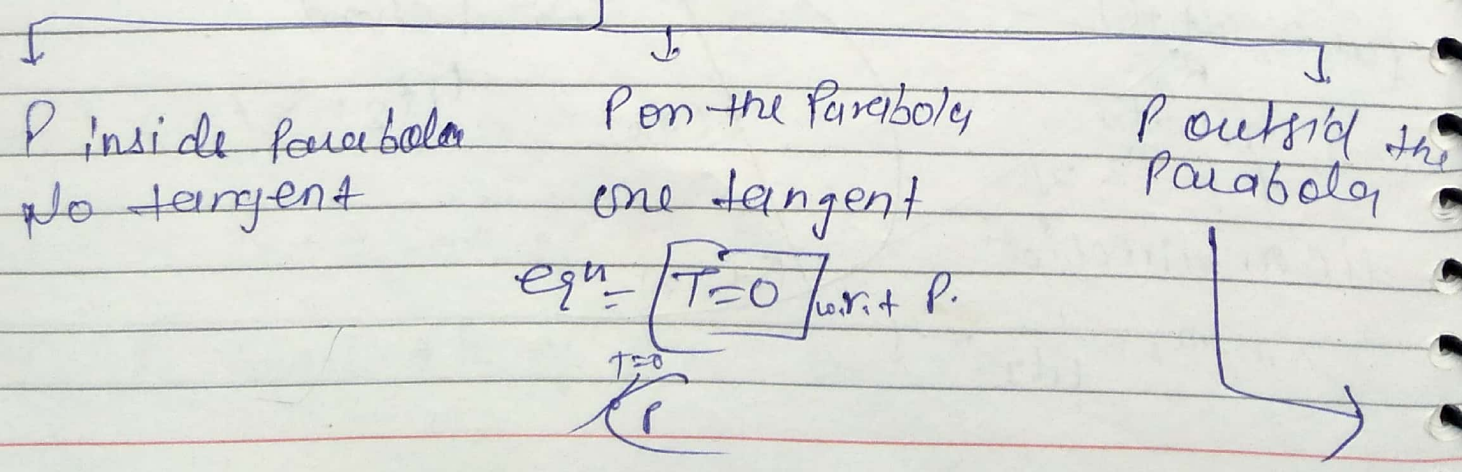 P inside Parabola
No tangent
P on the Parabola
one tangent
eqn = T=0 w.r.t P.
T=0
P
P outsid the
Parabola